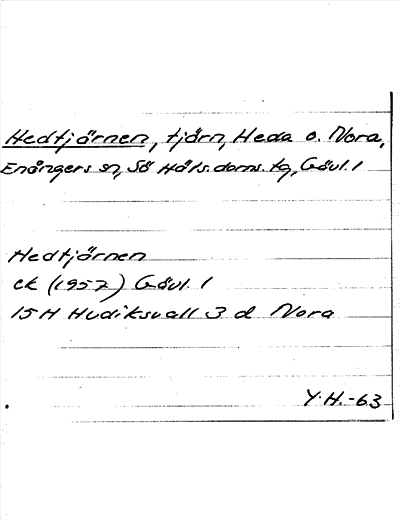 Hedtjärnen, tjärn, Heda o. Nora,
Enångers sn, Sö Häls. doms. tg, Gävl. l
Hedtjärnen
ek (1957) Gävl. l
15H Hudiksvall 3 d Nora
Y.H.-63